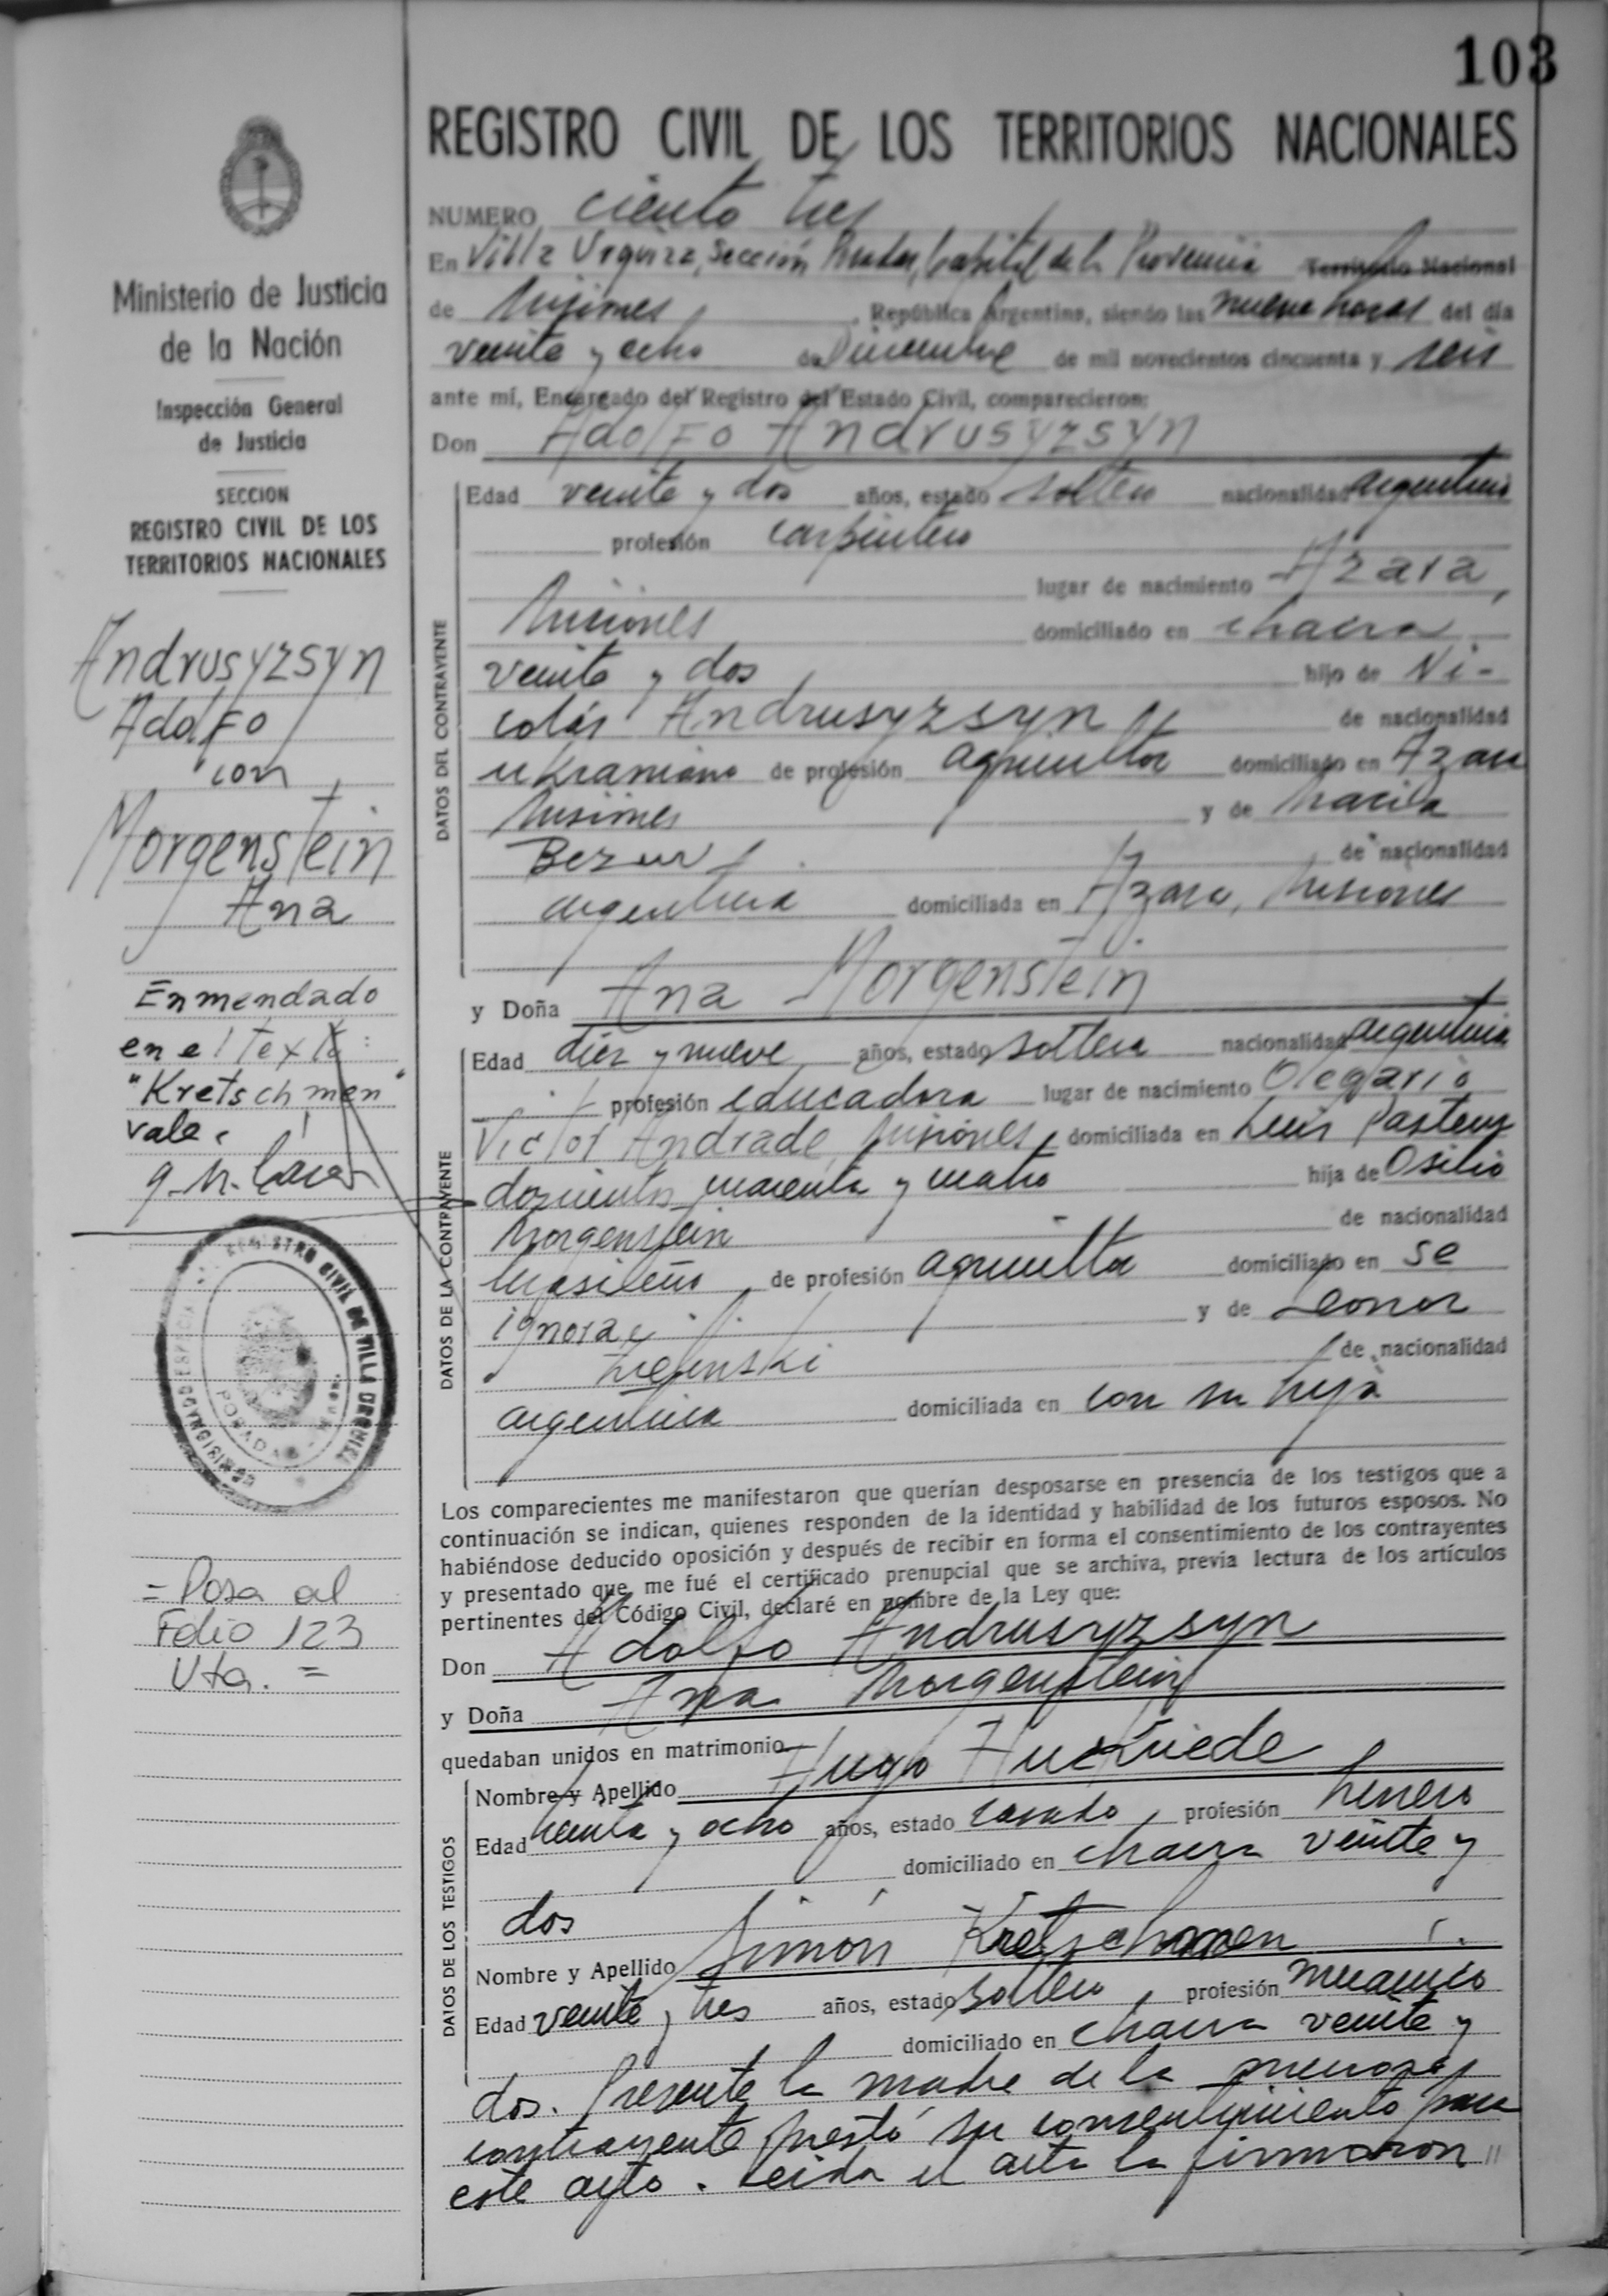 103
REGISTRO CIVIL DE LOS TERRITORIOS NACIONALES
NUMERO ciento tres
En Villa Urquiza, Sección Posadas, Capital de la Provincia Territorio Nacional
de Misiones, República Argentina, siendo las nueve horas del día
veinte y ocho de Diciembre de mil novecientos cincuenta y seis
ante mí, Encargado del Registro del Estado Civil, comparecieron:
Don Adolfo Andrusyzsyn
DATOS DEL CONTRAYENTE
Edad veinte y dos años, estado soltero nacionalidad argentino
profesión carpintero
lugar de nacimiento Azara,
Misiones domiciliado en chacra
veinte y dos hijo de Ni-
colás Andrusyzsyn de nacionalidad
ukraniano de profesión agricultor domiciliado en Azara
Misiones y de
de nacionalidad
argentina domiciliada en Azara, Misiones
y Doña Ana Morgenstein
DATOS DE LA CONTRAYENTE
Edad diez y nueve años, estado soltera nacionalidad argentina
profesión educadora lugar de nacimiento Olegario
Victor Andrade, Misiones, domiciliada en Luis Pasteur
doscientos cuarenta y cuatro hija de Osilio
Morgenstein de nacionalidad
brasileño de profesión agricultor domiciliado en se
ignora y de Leonor
de nacionalidad
argentina domiciliada en con su hija
Los comparecientes me manifestaron que querían desposarse en presencia de los testigos que a
continuación se indican, quienes responden de la identidad y habilidad de los futuros esposos. No
habiéndose deducido oposición y después de recibir en forma el consentimiento de los contrayentes
y presentado que me fué el certificado prenupcial que se archiva, previa lectura de los artículos
pertinentes del Código Civil, declaré en nombre de la Ley que:
Don Adolfo Andrusyzsyn
y Doña Ana Morgenstein
quedaban unidos en matrimonio
DATOS DE LOS TESTIGOS
Nombre y Apellido Hugo
Edad treinta y ocho años, estado casado, profesión herrero
domiciliado en chacra veinte y
dos
Nombre y Apellido Simón Kretschmen
Edad veinte y tres años, estado soltero, profesión mecánico
domiciliado en chacra veinte y
dos. Presente la madre de la
contrayente prestó su consentimiento para
este acto. Leida el acta la firmaron
Ministerio de Justicia
de la Nación
Inspección General
de Justicia
SECCION
REGISTRO CIVIL DE LOS
TERRITORIOS NACIONALES
Andrusyzsyn
Adolfo
con
Morgenstein
Ana
Enmendado
en el texto:
"Kretschmen"
vale.
REGISTRO CIVIL DE VILLA URQUIZA
COMISIONADO ESPECIAL
POSADAS
= Pasa al
Folio 123
Vta. =